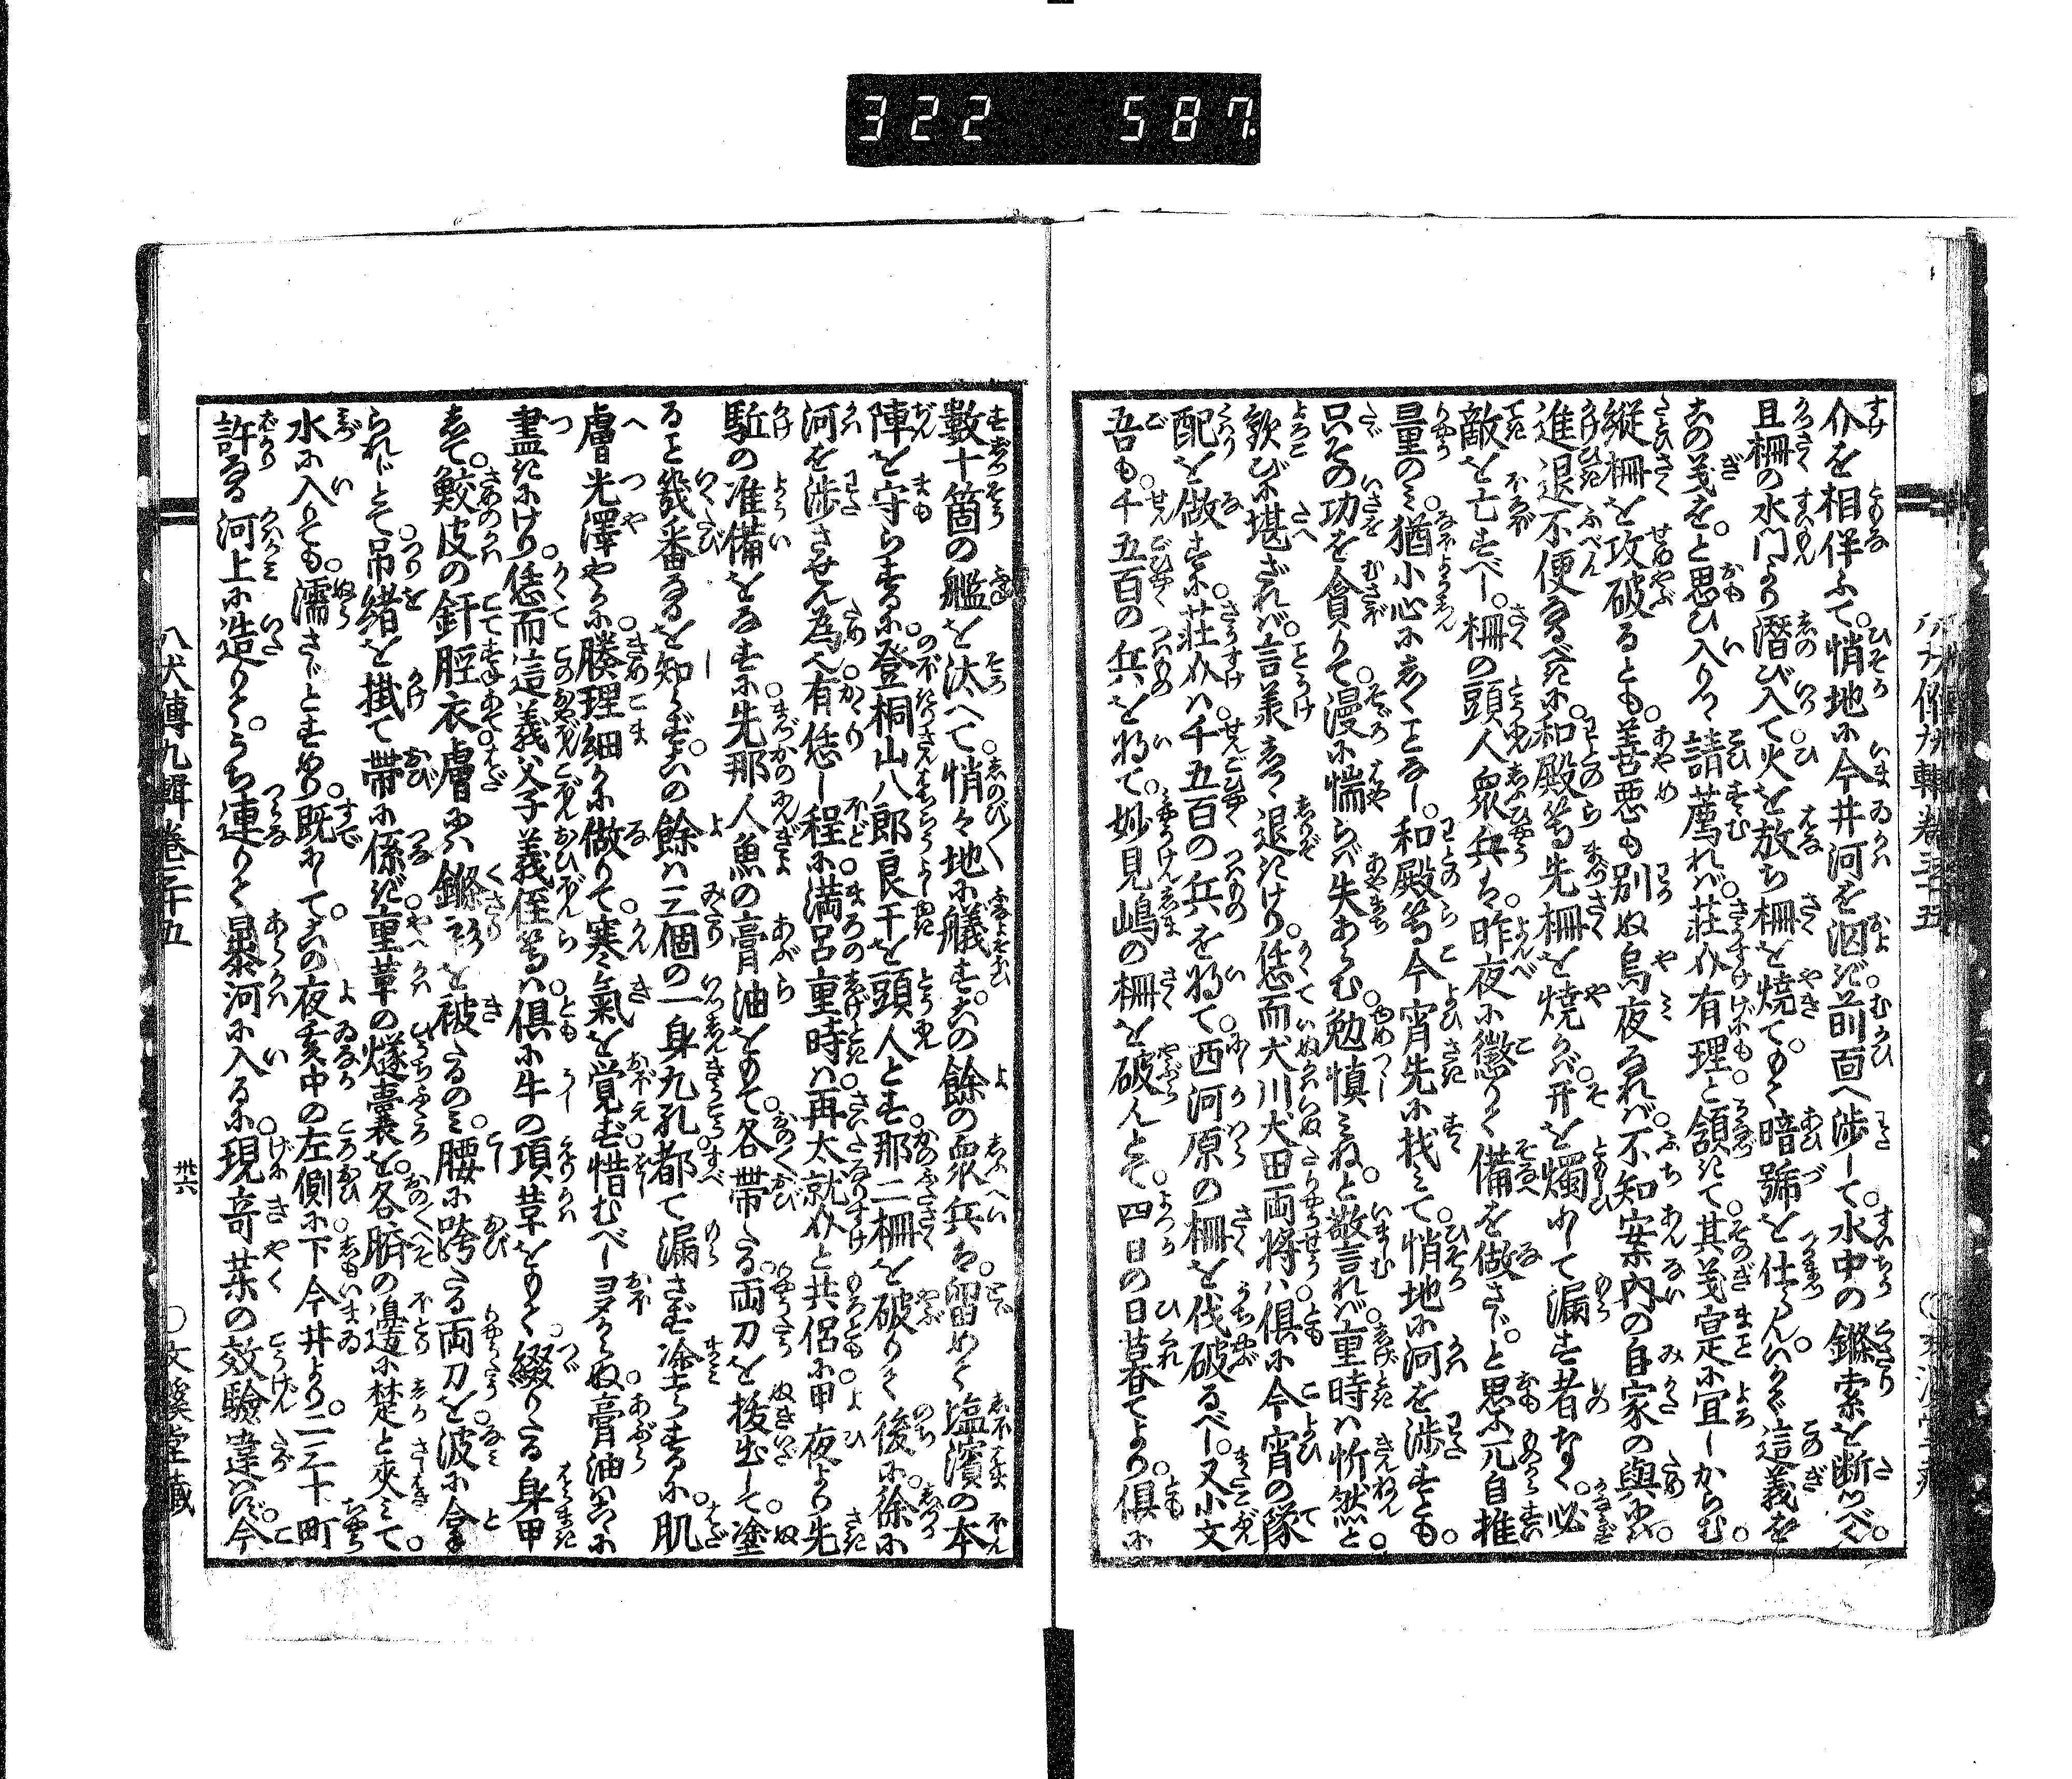 322 587
介を相伴ふて。悄地に今井河を泅ぎ前面へ渉して。水中の鏁索を断べく。
且柵の水門より潜び入て火を放ち柵を焼て。もて暗號を仕らん。いかで這義を
のみ義を。と思ひ入りて請薦れば。荘介有理と頷きて。其義寔に宜しからむ。
縦柵を攻破るとも。善悪も別ぬ烏夜なれば。不知案内の自家の與には。
進退不便なるべきに。和殿等先柵を焼かば。开を燭にして漏す者なく。必
敵を亡すべし。柵の頭人衆兵は。昨夜に懲りて備を做さじ。と思ふ元自推
量のみ。猶小心にしくことなし。和殿等今宵先に找みて。悄地に河を渉すとも。
只その功を貪りて。漫に惴らば失あらむ。勉慎みね。と警れば。重時は忻然と
歓びに堪ざれば。言承して退きけり。恁而犬川犬田両将は。倶に今宵の隊
配を做すに。荘介は。千五百の兵を将て。西河原の柵を伐破るべし。又小文
吾も。千五百の兵を将て。妙見嶋の柵を破んとて。四日の日暮てより。倶に
數十箇の艦を汰へて。悄々地に艤す。その餘の衆兵は。留めて塩濱の本
陣を守らするに。登桐山八郎良干を頭人とす。那二柵を破りて後に。徐に
河を渉させん為也。有恁し程に。満呂重時は。再太就介と共侶に。甲夜より先
駈の准備をなすに。先那人魚の膏油をもて。各帯たる両刀を抜出して。塗
ること幾番なるを知らず。その餘は三個の一身九孔。都て漏さず塗らするに。肌
膚光澤やかに。腠理細に做りて。寒氣を覚ず。惜むべし。ヨタからぬ膏油はこゝに
盡きにけり。恁而這義父子義侄等は。倶に牛の項韋をもて。綴りたる身甲
して。鮫皮の釬脛衣。膚には鏁衫を被たるのみ。腰に跨たる両刀を。波に拿
られじとて。吊緒を掛て帯に係ぎ。重革の燧囊を。各臍の邊に楚と夾みて。
水に入りても。濡さじとすめり。既にして。その夜亥中の左側に。下今井より。二三十町
許なる河上に造りて。うち連りて暴河に入るに。現竒薬の效驗違はず。今
八犬傳九輯巻三十五
卅六
○文溪堂藏